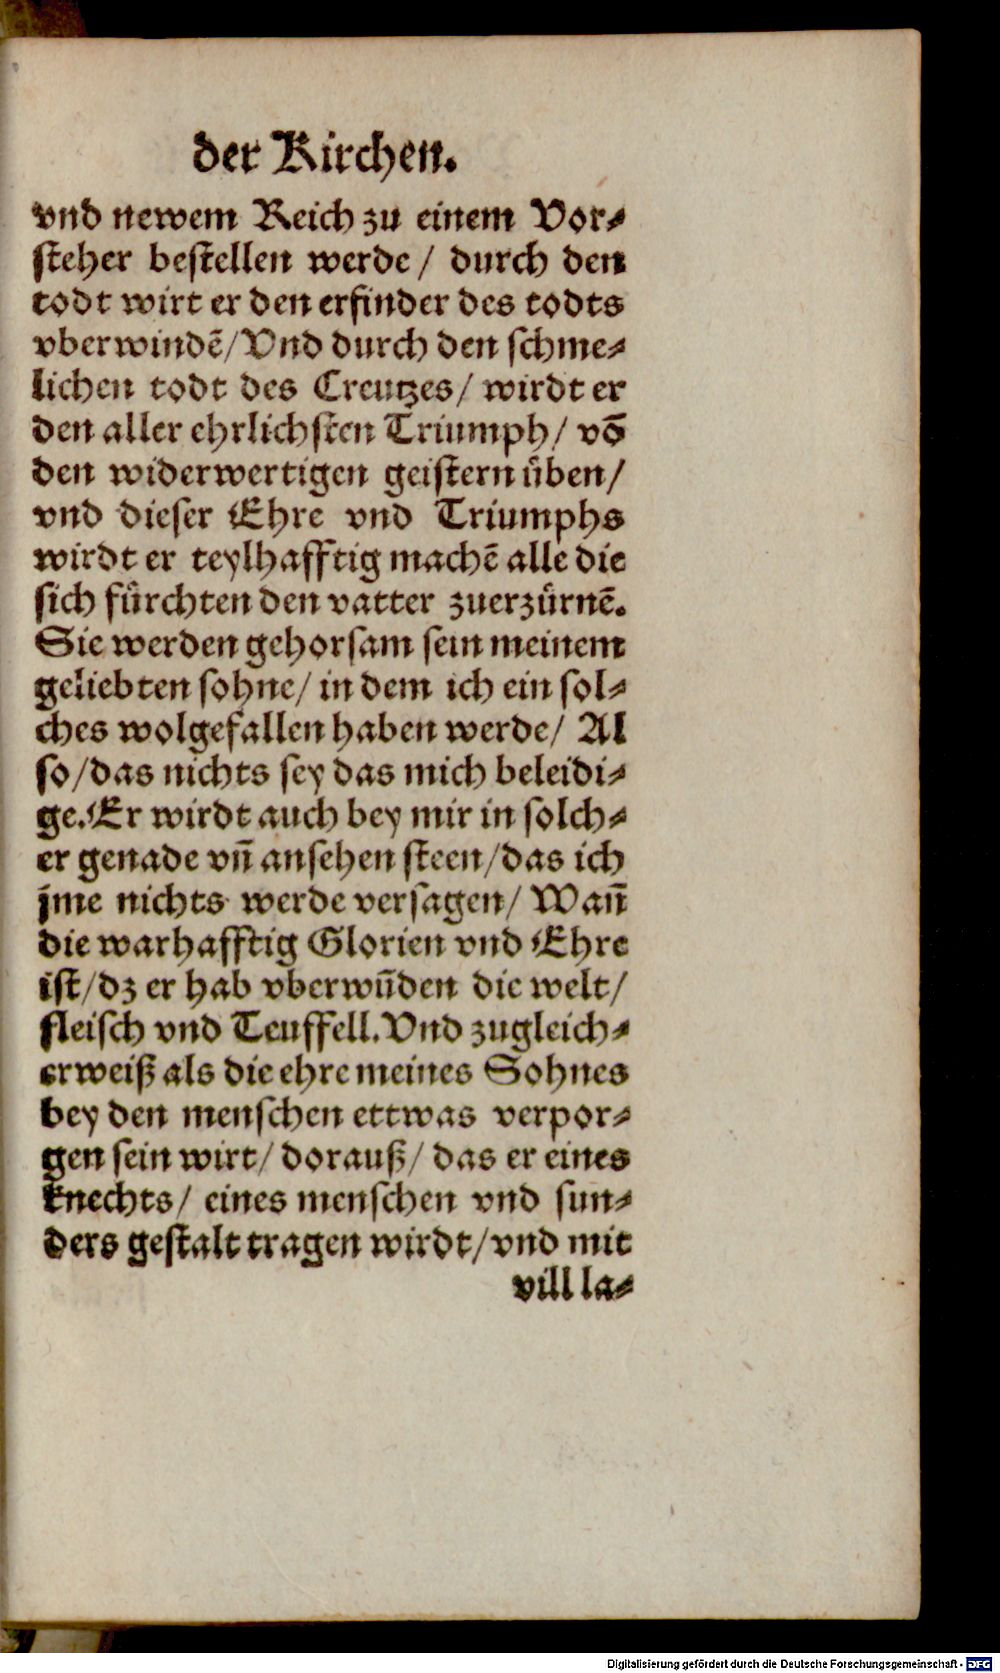 der Kirchen.
vnd newem Reich zu einem Vor⸗
steher bestellen werde / durch den
todt wirt er den erfinder des todts
vberwindẽ/Vnd durch den schme⸗
lichen todt des Creutzes/ wirdt er
den aller ehrlichsten Triumph/ võ
den widerwertigen geistern üben/
vnd dieser Ehre vnd Triumphs
wirdt er teylhafftig machẽ alle die
sich fürchten den vatter zuerzürnẽ.
Sie werden gehorsam sein meinem
geliebten sohne/ in dem ich ein sol⸗
ches wolgefallen haben werde/ Al
so/das nichts sey das mich beleidi⸗
ge.Er wirdt auch bey mir in solch⸗
er genade vñ ansehen steen/das ich
jme nichts werde versagen/ Wañ
die warhafftig Glorien vnd Ehre
ist/dz er hab vberwũden die welt/
fleisch vnd Teuffell.Vnd zugleich⸗
erweiß als die ehre meines Sohnes
bey den menschen ettwas verpor⸗
gen sein wirt/ dorauß/ das er eines
knechts/ eines menschen vnd sun⸗
ders gestalt tragen wirdt/vnd mit
vill la⸗
Digitalisierung gefördert durch die Deutsche Forschungsgemeinschaft - DFG